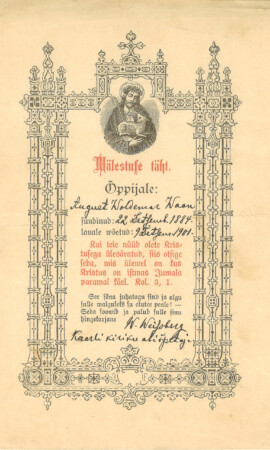 Mälestuse täht.
Õppijale:
August Woldemar
sündinud: 22. Septemb. 1884.
lauale wõetud: 1901.
Kui teie nüüd olete Kris-
tusega ülesäratud, siis otsige
seda, mis üleweł on kus
Kristus on istmas Jumala
paramal käel. Kol. 3, 1.
See sõna juhatagu sind ja algu
sulle walguseks sa elutee peale! —
Seda soowib ja palub sulle sinu
hingekarjane
W.
Kaarli kiriku abiõpetaja.